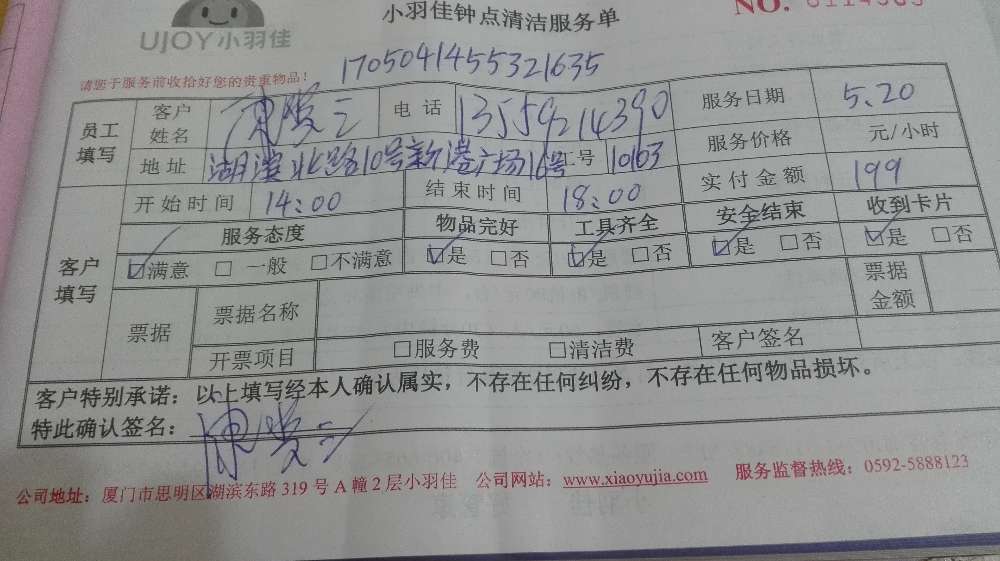 小羽佳钟点清洁服务单
NO.
UJOY小羽佳
请您于服务前收拾好您的贵重物品!
1705041455321635
员工填写
客户姓名 电话 13559214390 服务日期 5.20
地址 湖滨北路10号新港广场16号 号 10163 服务价格 元/小时
开始时间 14:00 结束时间 18:00 实付金额 199
客户填写
服务态度 物品完好 工具齐全 安全结束 收到卡片
☑满意 □一般 □不满意 ☑是 □否 ☑是 □否 ☑是 □否 ☑是 □否
票据 票据名称 票据金额
开票项目 □服务费 □清洁费 客户签名
客户特别承诺：以上填写经本人确认属实，不存在任何纠纷，不存在任何物品损坏。
特此确认签名：
公司地址：厦门市思明区湖滨东路 319 号 A 幢 2 层小羽佳 公司网站：www.xiaoyujia.com 服务监督热线：0592-5888123